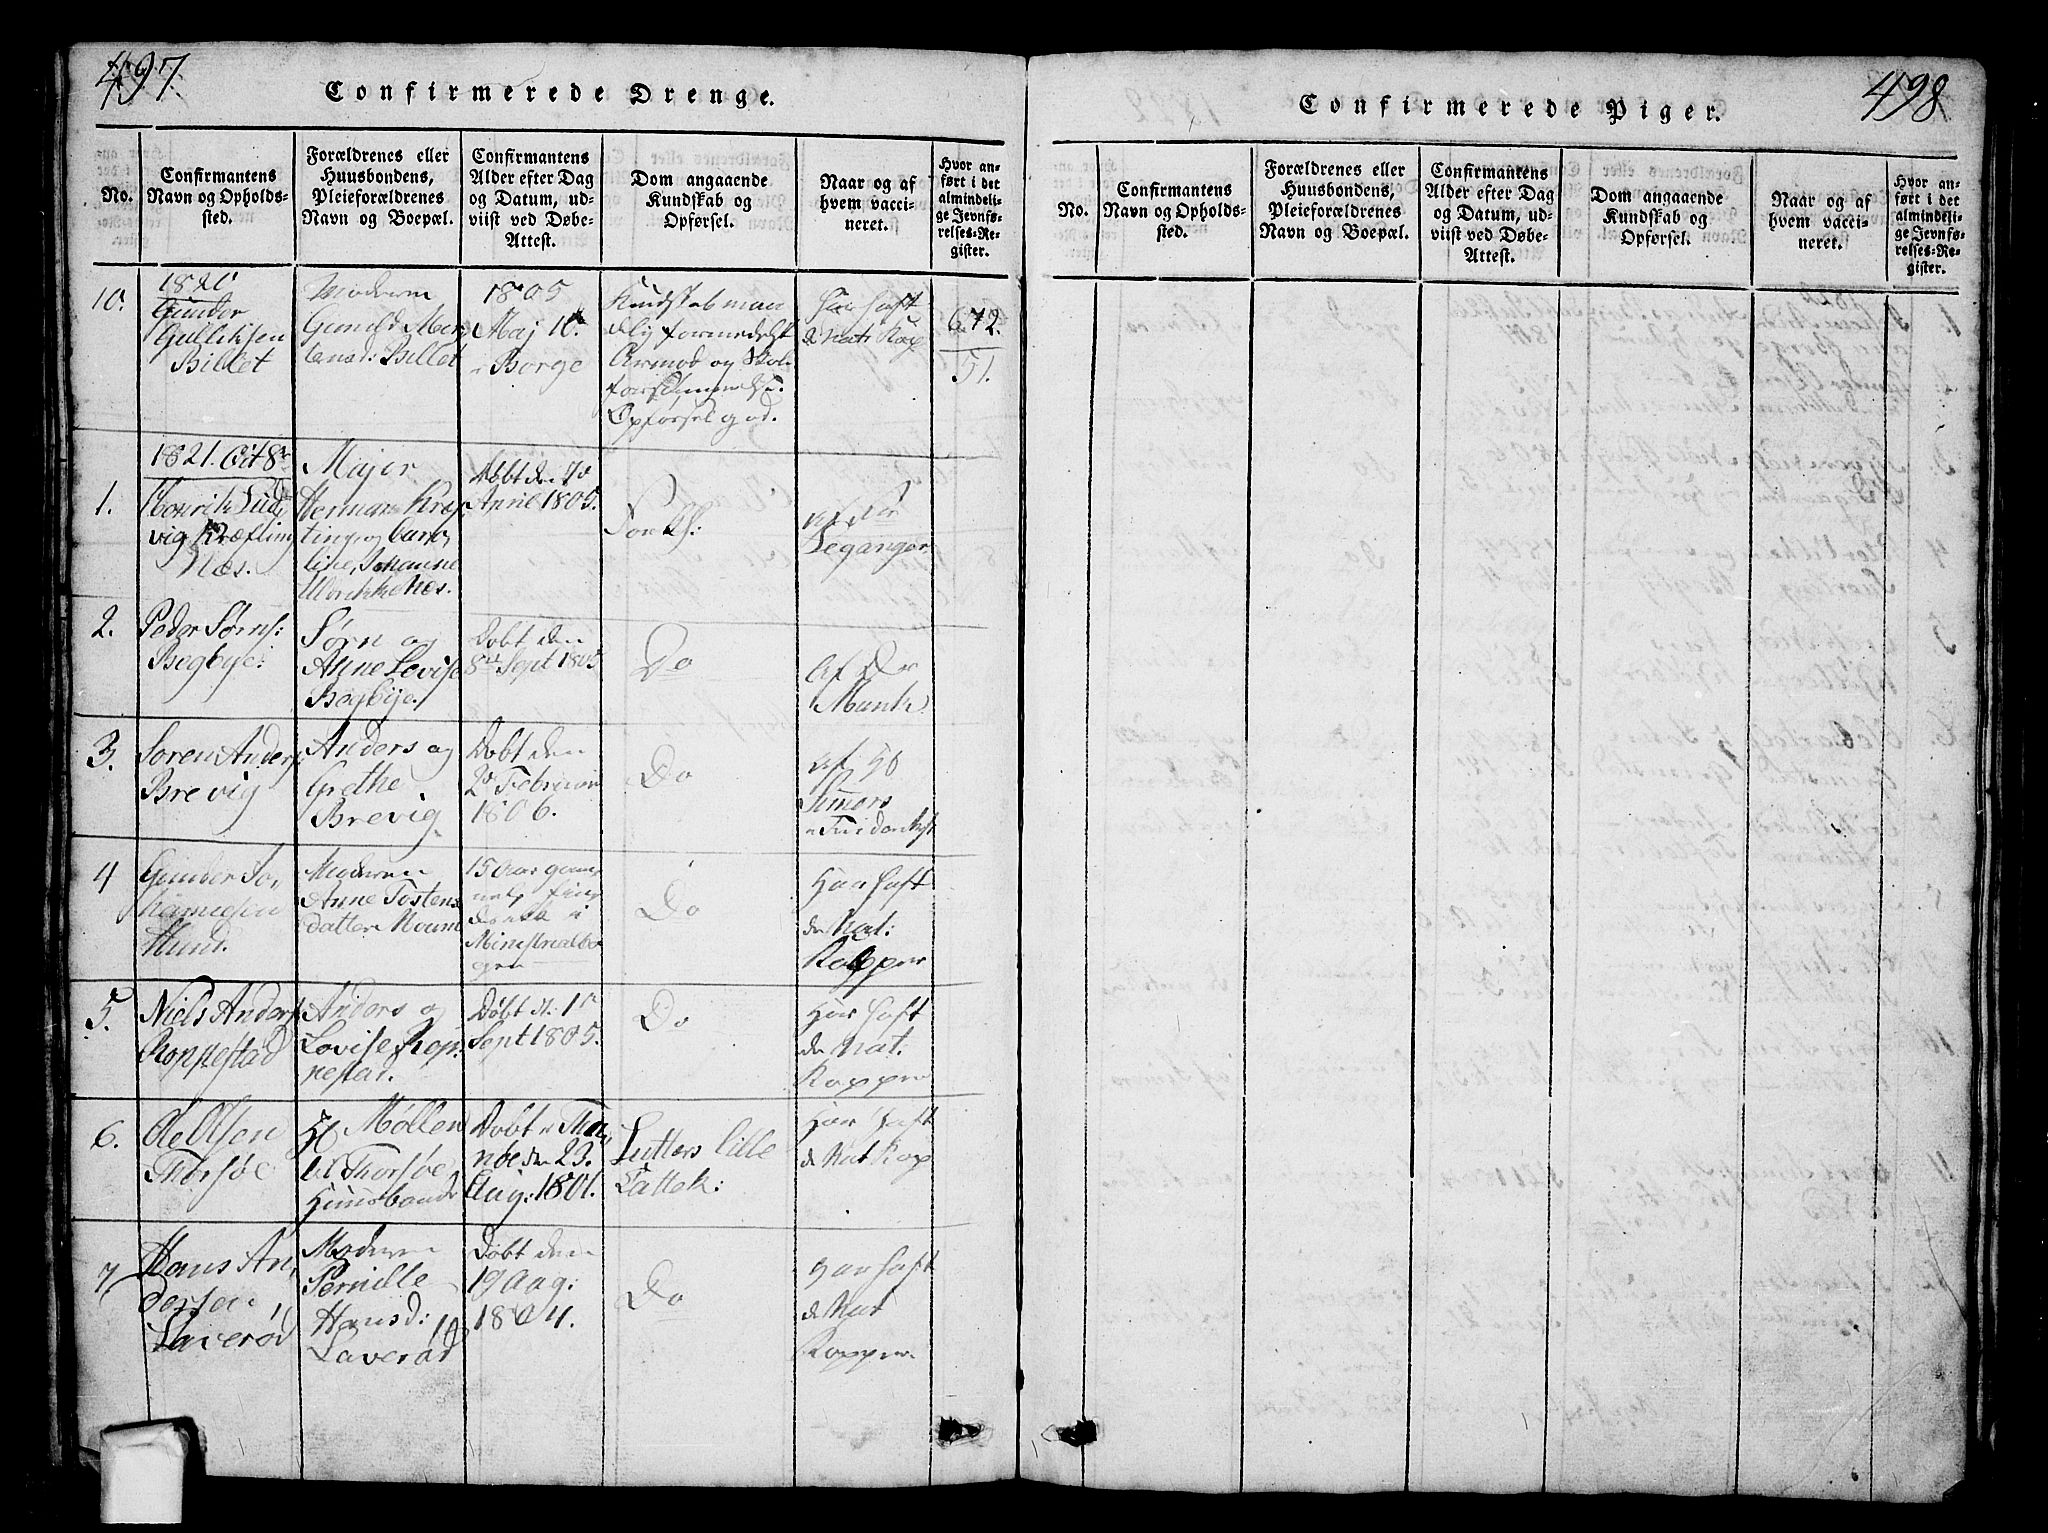 497
Confirmerede Drenge.
No.
Confirmantens
Navn og Opholds-
sted.
Forældrenes eller
Huusbondens,
Pleieforældrenes
Navn og Boepæl.
Confirmantens
Alder efter Dag
og Datum, ud-
viist ved Døbe-
Attest.
Dom angaaende
Kundskab og
Opførsel.
Naar og af
hvem vacci-
neret.
Hvor an-
ført i det
almindeli-
ge Jevnfø-
relses-Re-
gister.
10.
1820
Gunder
Gulliksen
Billet
Moderen
Gunild Mor
tensd: Billet
1805
Maj 10
Borge
Kundskab man
delig formedelst
Armod og Skol
forsømmelse.
Opførsel god.
Har haft
de nat: Kop
672.
51.
1821. Oct 8
1.
Henrik Lud
vig Kræfting
Næs.
Major
Herman Kræf
ting og Caro
line Johanne
Ulrikke Næs.
Døbt den 7
April 1805.
af Dr
Leganger
2.
Peder Sørns:
Begbye:
Sørn og
Anne Lovise
Begbye.
Døbt den
8de Sept 1805
Do
Af Dr
Munk
3.
Soren Anders
Brevig
Anders og
Grethe
Brevig
Døbt den
2 Februar
1806.
Do
af
Simers
4
Gunder Jo
hannesen
Hund.
Moderen
Anne Tostens
datter Moum
15 Aar gam
Do
Har haft
de Nat:
Kopper
5.
Niels Anders
Roppestad
Anders og
Lovise Rop
pestad.
Døbt d. 1
Sept 1805.
Do
Har haft
de Nat.
Kopper
6.
Ole Olsen
Thorsøe
Møllen
Thorsøe
Huusbond
Døbt
den 23.
Aug: 1801.
Lutters Lille
Cattek:
Har haft
de Nat Kop
7
Hans An
dersen
Laverød
Moderen
Pernille
Hansd:
Laverød
Døbt den
19 Aug:
1804.
Do
Har haft
de Nat
Kopper
498
Confirmerede Piger.
No.
Confirmantens
Navn og Opholds-
sted.
Forældrenes eller
Huusbondens,
Pleieforældrenes
Navn og Boepæl.
Confirmantens
Alder efter Dag
og Datum, ud-
viist ved Døbe-
Attest.
Dom angaaende
Kundskab og
Opførsel.
Naar og af
hvem vacci-
neret.
Hvor an-
ført i det
almindeli-
ge Jevnfø-
relses-Re-
gister.